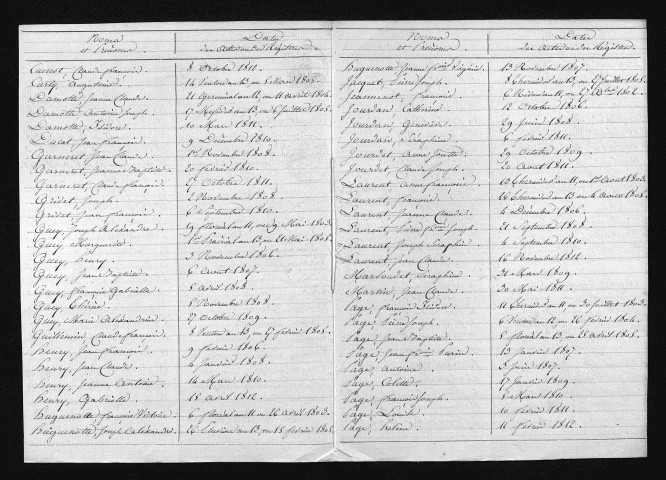 Noms et Prénoms
Dates des actes ou des Registres.
Cuenot, Claude françois
8 Octobre 1811.
Curty, Augustine
Damotte, Jeanne Claude
21 Germinal an 11, ou 11 avril 1803
Damotte, Antoine Joseph
17 Messidor an 13, ou 6 Juillet 1805
Damotte, Isidore
10 Mars 1811.
Ducat, Jean françois
9 Décembre 1810.
Garneret, Jean Claude
1er Novembre 1808.
Garneret, Jeanne Baptiste
20 février 1810.
Garneret, Claude françois
17 Octobre 1811.
Gridet, Joseph
2 Novembre 1808
Gridet, Jean françois
6 Septembre 1810.
Guey, Joseph Alexandre
9 floréal an 11, ou 29 Mai 1803.
Guey, Marguerite
1er Prairial an 13, ou 21 Mai 1805.
Guey, henry
3 Novembre 1806.
Guey, Jean Baptiste
6 Aout 1807.
Guey, françoise Gabrielle
8 avril 1808.
Guey, Thérèse
8 Novembre 1808.
Guey, Marie Alexandrine
17 Octobre 1809.
Guillemin, Claude françois
8 Ventose an 13, ou 27 février 1805.
henry, Jean françois
9 février 1806.
henry, Jean Claude
4 Janvier 1808.
henry, Jeanne Antoine
14 Mars 1810.
henry, Gabrielle
18 avril 1812.
huguenotte, françois Victoire
6 floréal an 11, ou 26 avril 1803.
huguenotte, Joseph Alexandre
26 Pluviose an 13, ou 15 février 1805.
Noms et Prénoms
Dates des actes ou des Registres.
huguenotte, Jeanne
13 Novembre 1807.
Jacquet, Pierre Joseph
8 Thermidor an 13, ou 27 Juillet 1805.
Jeanninot, françois
Jourdan, Catherine
12 Octobre 1806.
Jourdan, Geneviève
29 Juin 1808
Jourdan, Séraphine
6 février 1811.
Jourdet, Anne Josette
29 Octobre 1809.
Jourdet, Claude Joseph
20 Aout 1811.
Laurent, Anne françoise
Laurent, françois
Laurent, Jeanne Claude
4 Décembre 1806.
Laurent, Joseph
21 Septembre 1808.
Laurent, Joseph Séraphin
4 Septembre 1810.
Laurent, Jean Claude
16 Novembre 1811.
Marsoudet, Séraphine
31 Mars 1809.
Martin, Jean Claude
30 Mai 1811.
Page, françois Isidore
11 Thermidor an 11, ou 30 Juillet 1803.
Page, Pierre Joseph
Page, Jean Baptiste
8 floréal an 13, ou 28 avril 1805.
Page, Jean
13 Janvier 1807.
Page, Antoine
3 Juin 1807.
Page, Colette
17 Janvier 1809.
Page, françois Joseph
8 Mars 1810.
Page, Louise
10 février 1811.
Page,
11 février 1812.